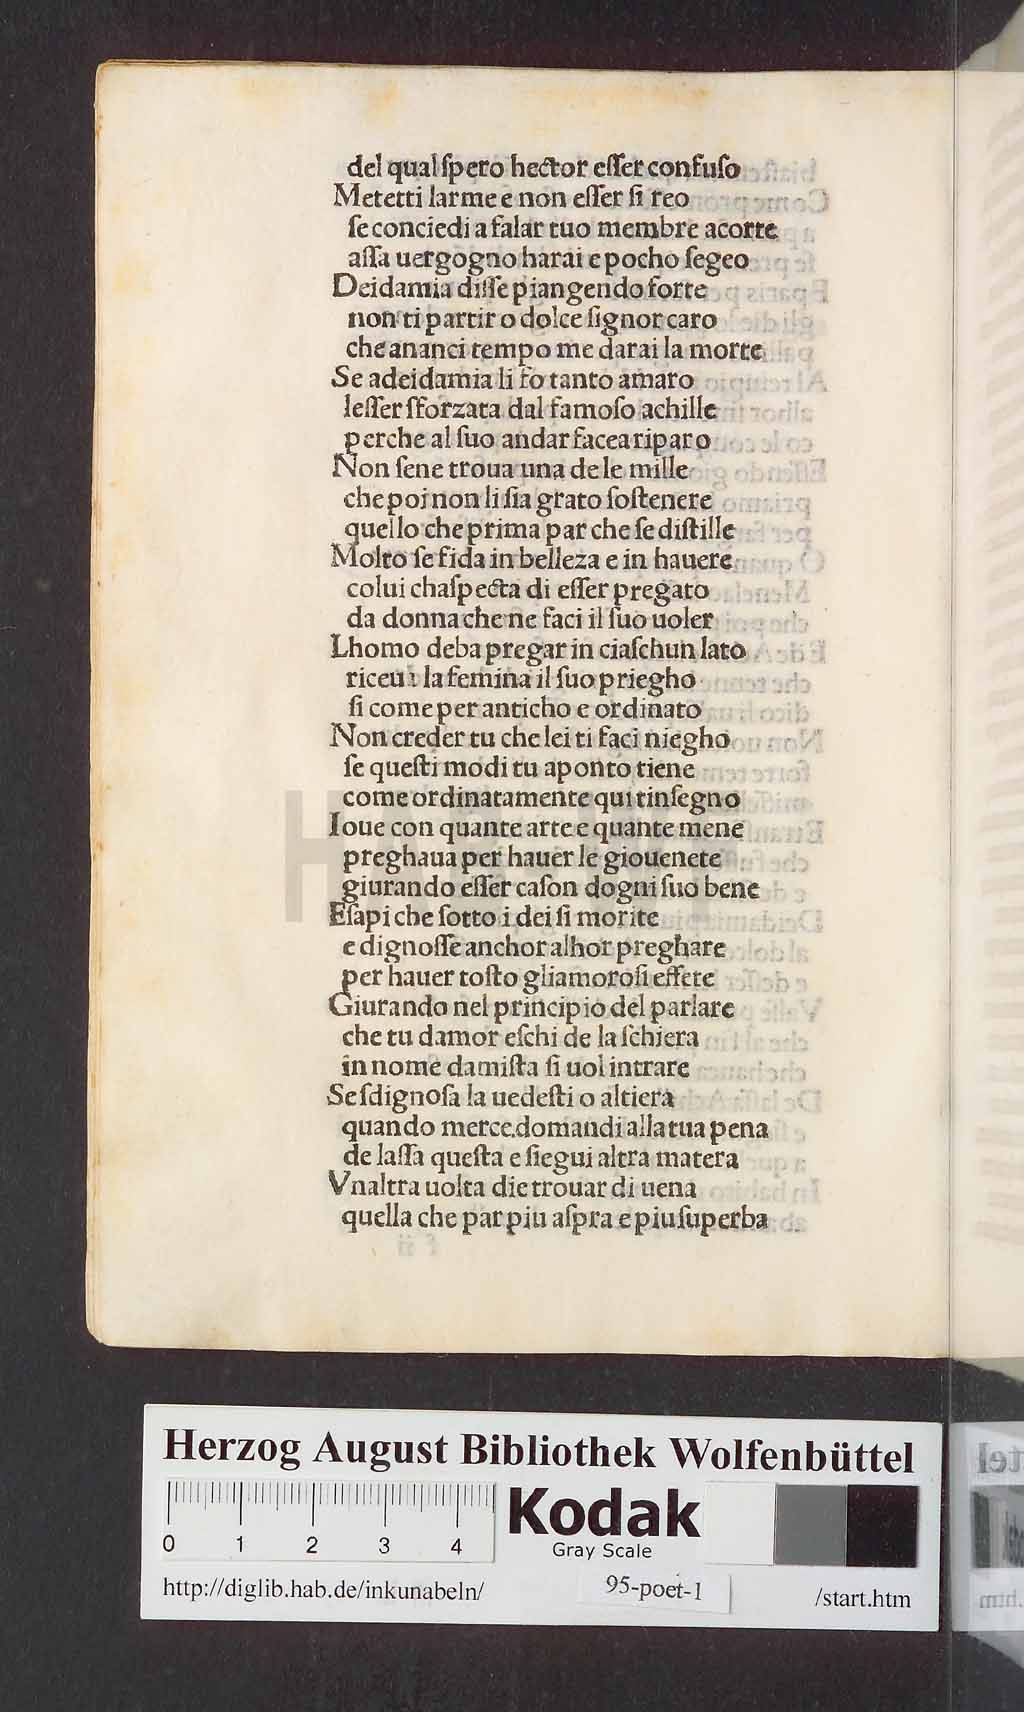 del qual ſpero hector eſſer confuſo
Metetti larme e non eſſer ſi reo
ſe conciedi a falar tuo membre acorte
aſſa uergogno harai e pocho ſegeo
Deidamia diſſe piangendo forte
non ti partir o dolce ſignor caro
che ananci tempo me darai la morte
Se adeidamia li fo tanto amaro
leſſer ſforzata dal famoſo achille
perche al ſuo andar facea riparo
Non ſene troua una de le mille
che poi non li ſia grato ſoſtenere
quello che prima par che ſe diſtille
Molto ſe fida in belleza e in hauere
colui chaſpecta di eſſer pregato
da donna che ne faci il ſuo uoler
Lhomo deba pregar in ciaſchun lato
riceui la femina il ſuo priegho
ſi come per anticho e ordinato
Non creder tu che lei ti faci niegho
ſe queſti modi tu aponto tiene
come ordinatamente qui tinſegno
Ioue con quante arte e quante mene
preghaua per hauer le giouenete
giurando eſſer caſon dogni ſuo bene
Eſapi che ſotto i dei ſi morite
e dignoſſe anchor alhor preghare
per hauer toſto gliamoroſi effete
Giurando nel principio del parlare
che tu damor eſchi de la ſchiera
in nome damiſta ſi uol intrare
Seſdignoſa la uedeſti o altiera
quando merce.domandi alla tua pena
de laſſa queſta e ſiegui altra matera
Vnaltra uolta die trouar di uena
quella che par piu aſpra e piu ſuperba
HAB WF
Herzog August Bibliothek Wolfenbüttel
0 1 2 3 4
Kodak
Gray Scale
http://diglib.hab.de/inkunabeln/
95-poet-1
/start.htm